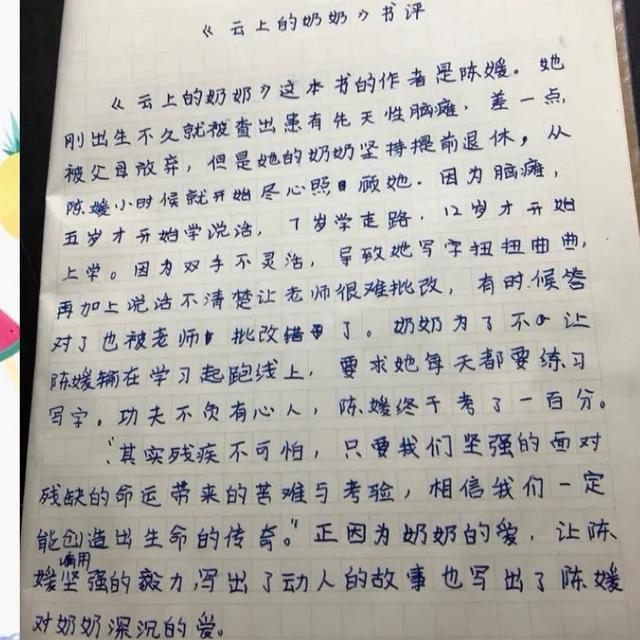 《云上的奶奶》书评
《云上的奶奶》这本书的作者是陈媛。她
刚出生不久就被查出患有先天性脑瘫，差一点
被父母放弃，但是她的奶奶坚持提前退休，从
陈媛小时候就开始尽心照顾她。因为脑瘫，
五岁才开始学说话，7岁学走路，12岁才开始
上学。因为双手不灵活，导致她写字扭扭曲曲，
再加上说话不清楚让老师很难批改，有时候答
对了也被老师批改错了。奶奶为了不让
陈媛输在学习起跑线上，要求她每天都要练习
写字。功夫不负有心人，陈媛终于考了一百分。
“其实残疾不可怕，只要我们坚强的面对
残缺的命运带来的苦难与考验，相信我们一定
能创造出生命的传奇。”正因为奶奶的爱，让陈
媛用坚强的毅力，写出了动人的故事也写出了陈媛
对奶奶深沉的爱。